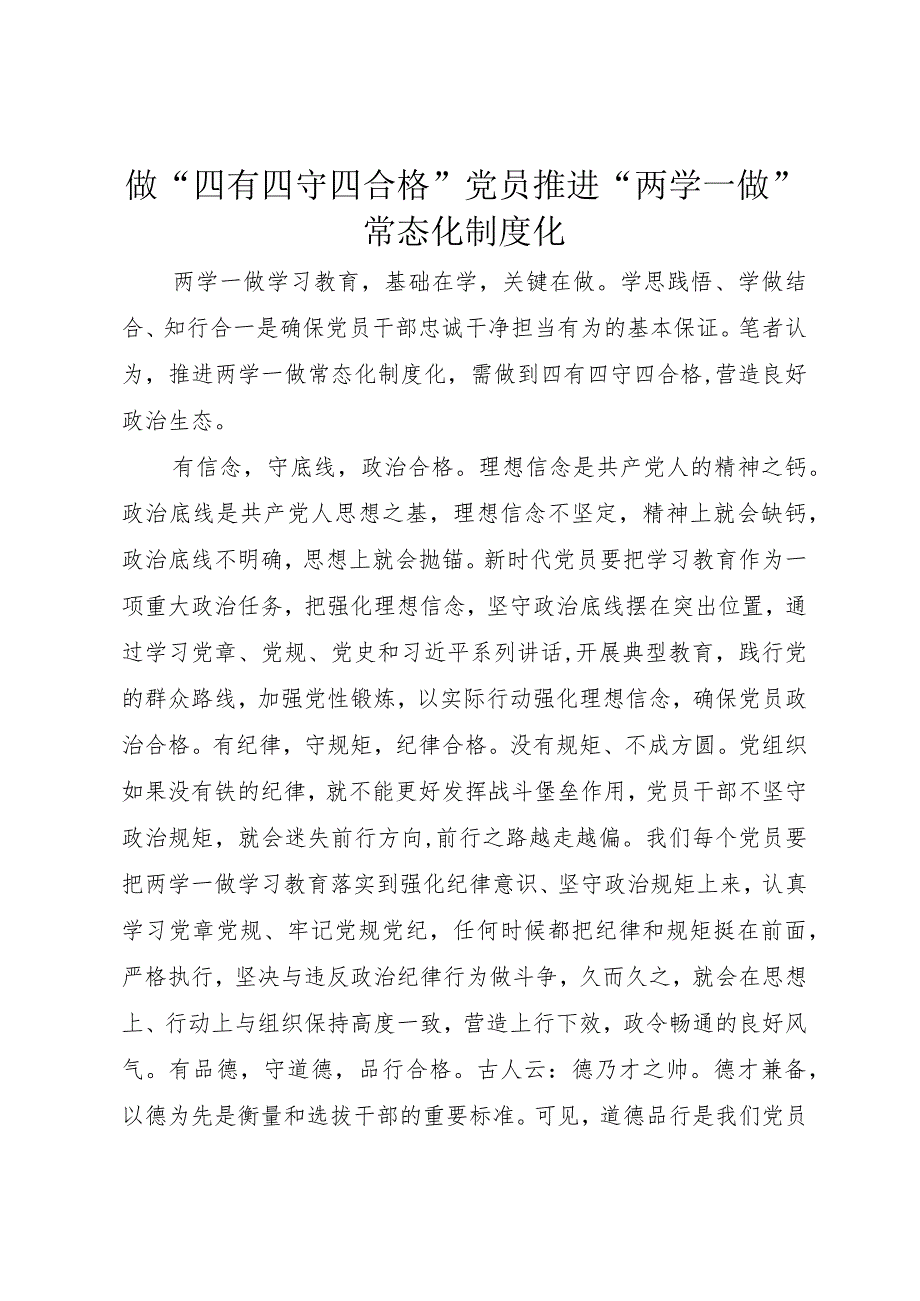 做“四有四守四合格”党员推进“两学一做”
常态化制度化
两学一做学习教育，基础在学，关键在做。学思践悟、学做结
合、知行合一是确保党员干部忠诚干净担当有为的基本保证。笔者认
为，推进两学一做常态化制度化，需做到四有四守四合格,营造良好
政治生态。
有信念，守底线，政治合格。理想信念是共产党人的精神之钙。
政治底线是共产党人思想之基，理想信念不坚定，精神上就会缺钙，
政治底线不明确，思想上就会抛锚。新时代党员要把学习教育作为一
项重大政治任务，把强化理想信念，坚守政治底线摆在突出位置，通
过学习党章、党规、党史和习近平系列讲话,开展典型教育，践行党
的群众路线，加强党性锻炼，以实际行动强化理想信念，确保党员政
治合格。有纪律，守规矩，纪律合格。没有规矩、不成方圆。党组织
如果没有铁的纪律，就不能更好发挥战斗堡垒作用，党员干部不坚守
政治规矩，就会迷失前行方向,前行之路越走越偏。我们每个党员要
把两学一做学习教育落实到强化纪律意识、坚守政治规矩上来，认真
学习党章党规、牢记党规党纪，任何时候都把纪律和规矩挺在前面，
严格执行，坚决与违反政治纪律行为做斗争，久而久之，就会在思想
上、行动上与组织保持高度一致，营造上行下效，政令畅通的良好风
气。有品德，守道德，品行合格。古人云：德乃才之帅。德才兼备，
以德为先是衡量和选拔干部的重要标准。可见，道德品行是我们党员